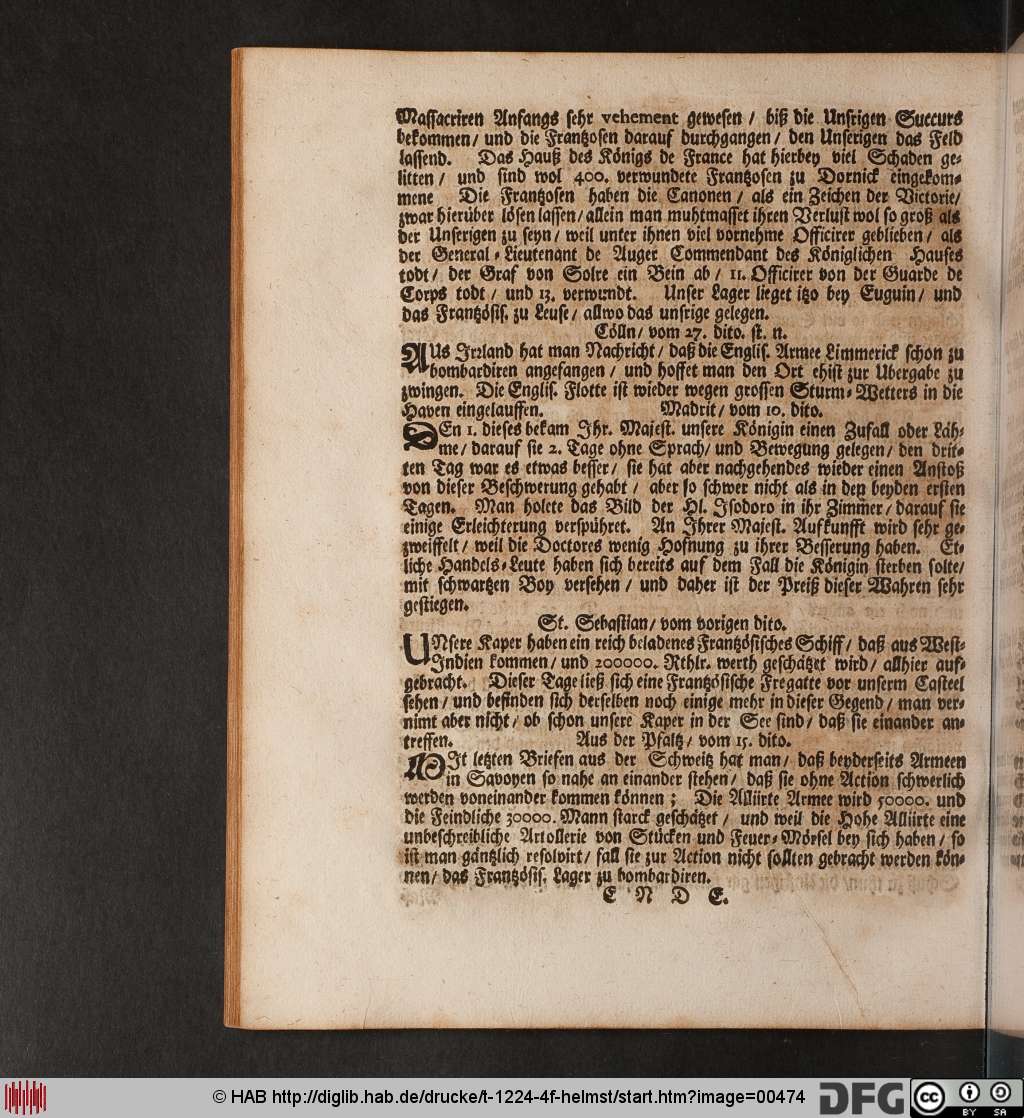 Massacriren Anfangs sehr vehement gewesen / biß die Unsrigen Succurs
bekommen / und die Frantzosen darauf durchgangen / den Unserigen das Feld
lassend. Das Hauß des Königs de France hat hierbey viel Schaden ge-
litten / und sind wol 400. verwundete Frantzosen zu Dornick eingekom-
mene Die Frantzosen haben die Canonen / als ein Zeichen der Victorie /
zwar hierüber lösen lassen / allein man muhtmasset ihren Verlust wol so groß als
der Unserigen zu seyn / weil unter ihnen viel vornehme Officirer geblieben / als
der General-Lieutenant de Auger Commendant des Königlichen Hauses
todt / der Graf von Solre ein Bein ab / 11. Officirer von der Guarde de
Corps todt / und 13. verwundt. Unser Lager lieget itzo bey Euguin / und
das Frantzösis. zu Leuse / allwo das unsrige gelegen.
Cölln / vom 27. dito. st. n.
AUs Irrland hat man Nachricht / daß die Englis. Armee Limmerick schon zu
bombardiren angefangen / und hoffet man den Ort ehist zur Ubergabe zu
zwingen. Die Englis. Flotte ist wieder wegen grossen Sturm-Wetters in die
Haven eingelauffen. Madrit / vom 10. dito.
DEn 1. dieses bekam Ihr. Majest. unsere Königin einen Zufall oder Läh-
me / darauf sie 2. Tage ohne Sprach / und Bewegung gelegen / den drit-
ten Tag war es etwas besser / sie hat aber nachgehendes wieder einen Anstoß
von dieser Beschwerung gehabt / aber so schwer nicht als in den beyden ersten
Tagen. Man holete das Bild der Hl. Isodoro in ihr Zimmer / darauf sie
einige Erleichterung verspühret. An Ihrer Majest. Aufkunfft wird sehr ge-
zweiffelt / weil die Doctores wenig Hofnung zu ihrer Besserung haben. Et-
liche Handels-Leute haben sich bereits auf dem Fall die Königin sterben solte /
mit schwartzen Boy versehen / und daher ist der Preiß dieser Wahren sehr
gestiegen.
St. Sebastian / vom vorigen dito.
UNsere Kaper haben ein reich beladenes Frantzösisches Schiff / daß aus West-
Indien kommen / und 200000. Rthlr. werth geschätzet wird / allhier auf-
gebracht. Dieser Tage ließ sich eine Frantzösische Fregatte vor unserm Casteel
sehen / und befinden sich derselben noch einige mehr in dieser Gegend / man ver-
nimt aber nicht / ob schon unsere Kaper in der See sind / daß sie einander an-
treffen. Aus der Pfaltz / vom 15. dito.
MIt letzten Briefen aus der Schweitz hat man / daß beyderseits Armeen
in Savoyen so nahe an einander stehen / daß sie ohne Action schwerlich
werden voneinander kommen können ; Die Alliirte Armee wird 50000. und
die Feindliche 30000. Mann starck geschätzet / und weil die Hohe Alliirte eine
unbeschreibliche Artollerie von Stücken und Feuer-Mörsel bey sich haben / so
ist man gäntzlich resolvirt / fall sie zur Action nicht sollten gebracht werden kön-
nen / das Frantzösis. Lager zu bombardiren.
E N D E.
© HAB http://diglib.hab.de/drucke/t-1224-4f-helmst/start.htm?image=00474
DFG
cc BY SA